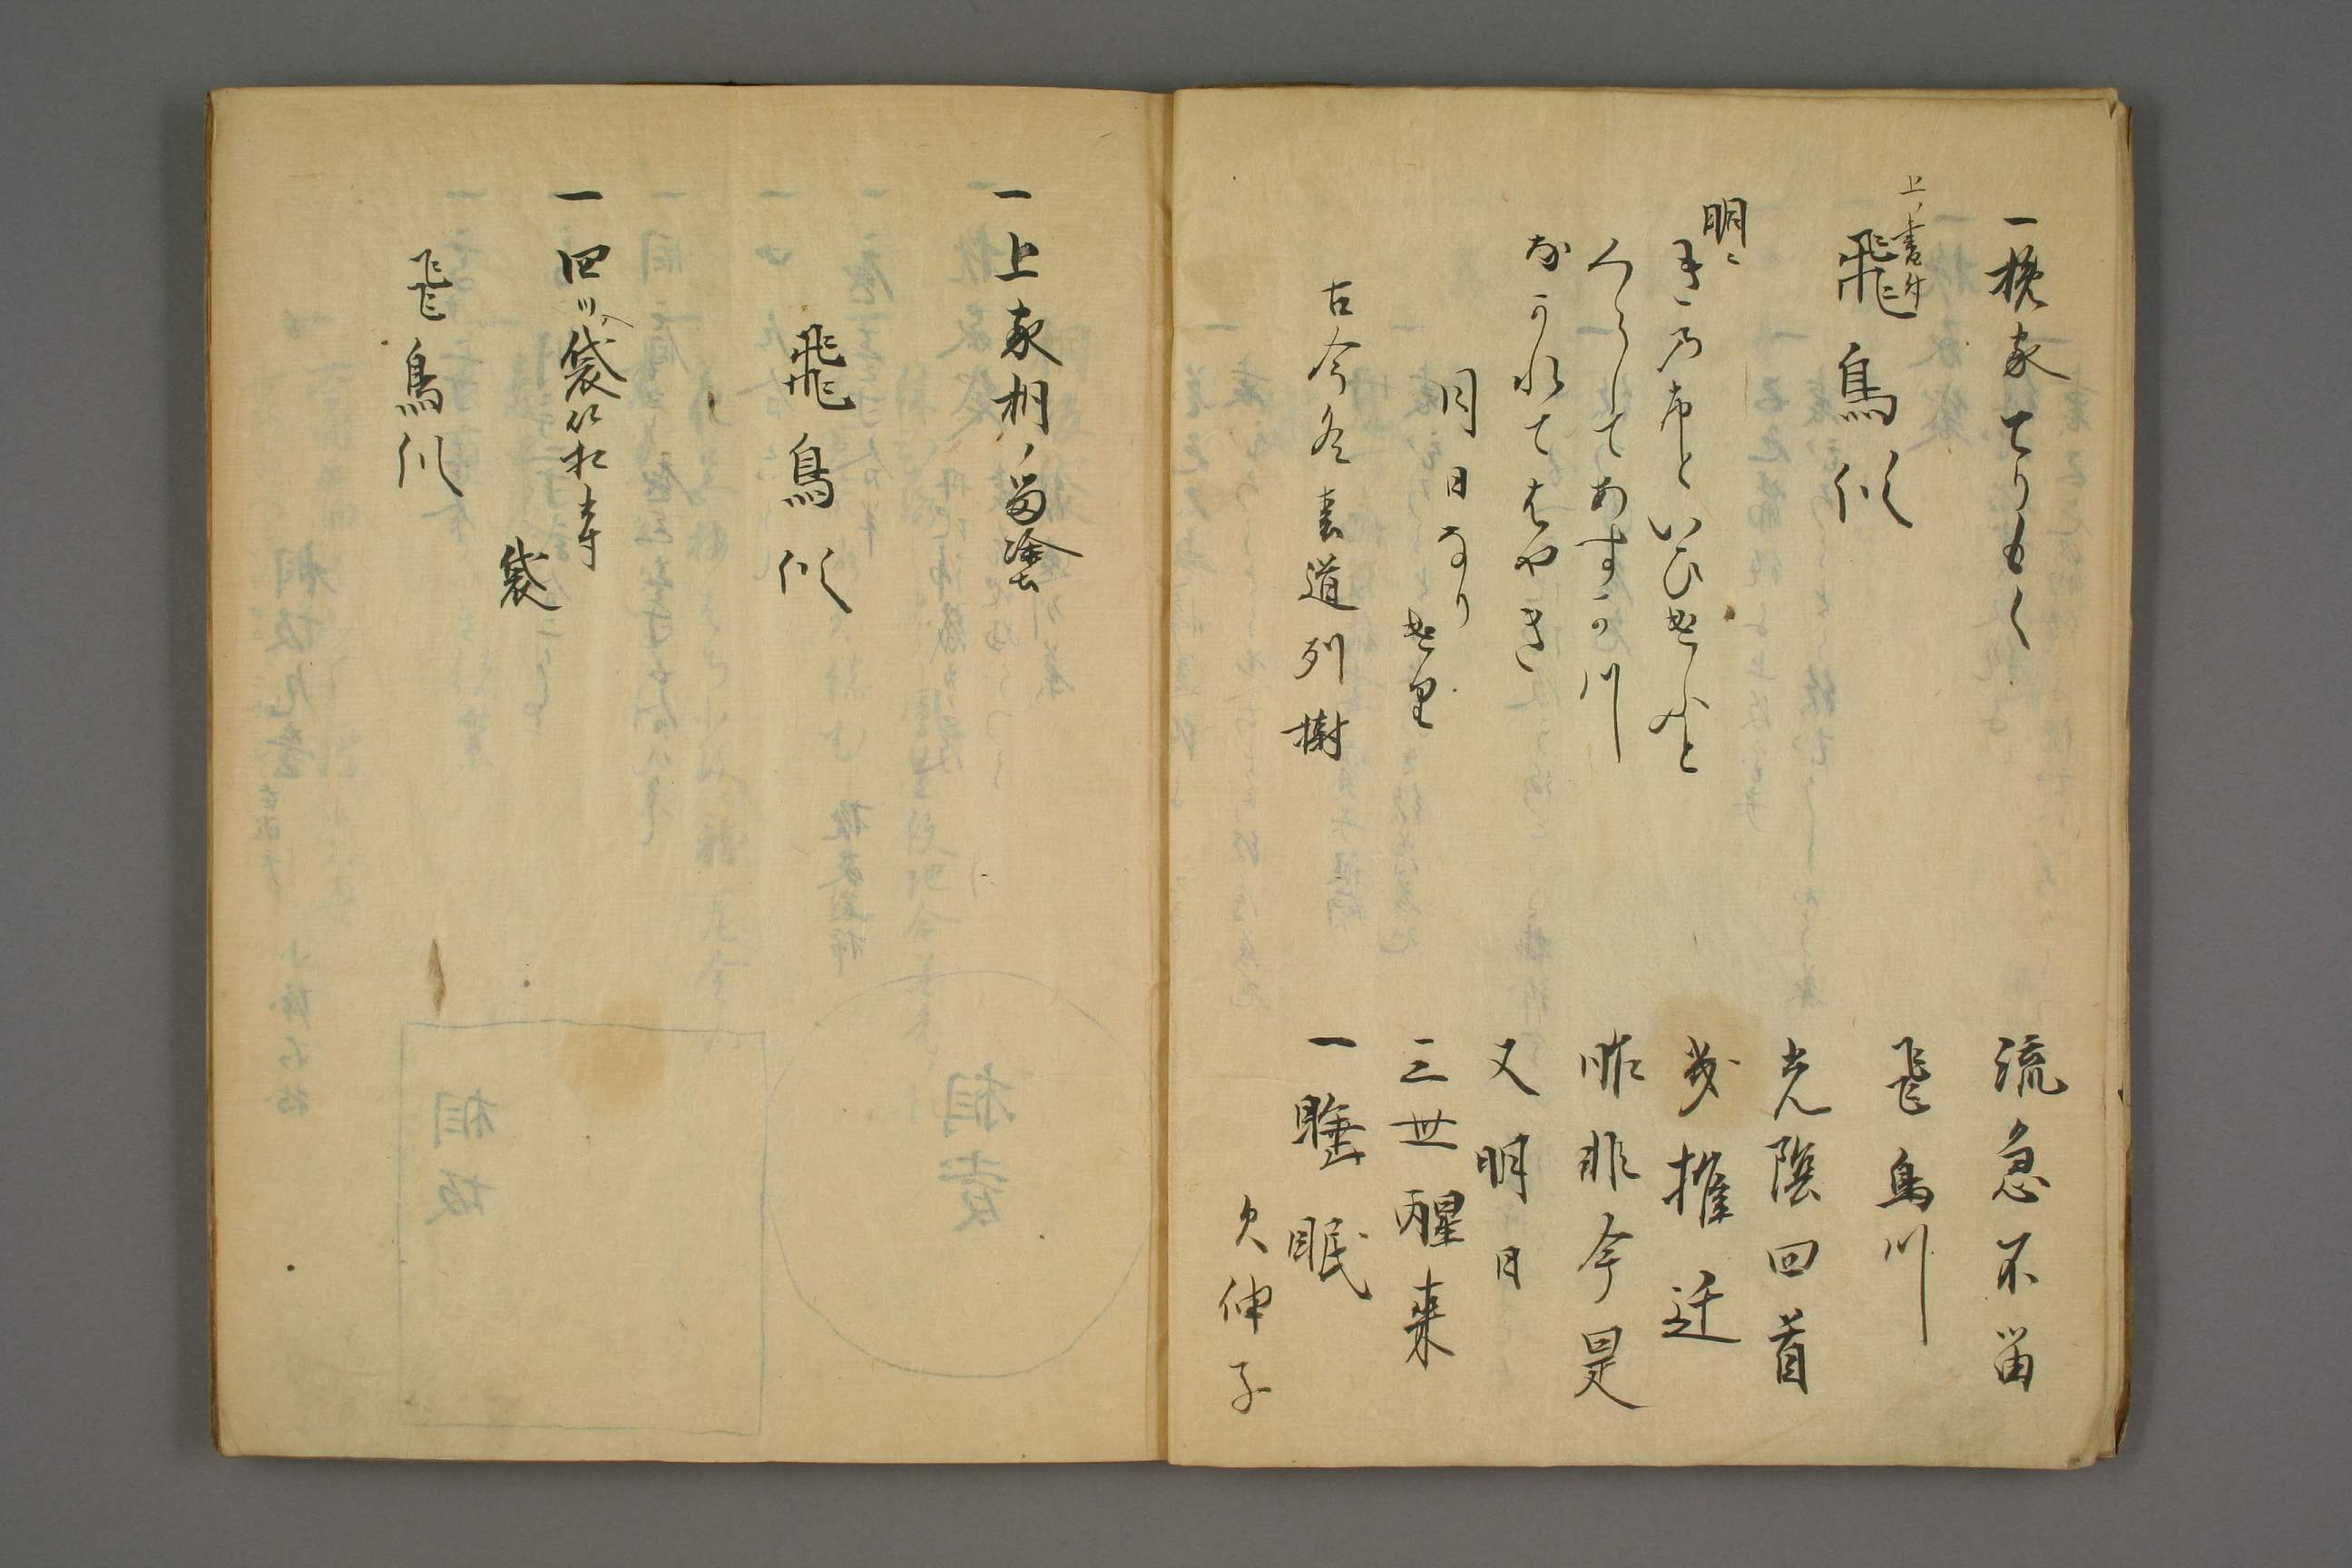 一挽家てりもく
上ノ書付
飛鳥川
明ニ
きのふといひけふと
くらしてあすか川
なかれてはやき
月日なり
けり
古今冬春道列樹
流急不留
飛鳥川
光陰回首
幾推迁
昨非今是
又明日
三世醒来
一睡眠
欠伸子
一上家桐ノ留塗
飛鳥川
一四ツ袋
袋
飛鳥川